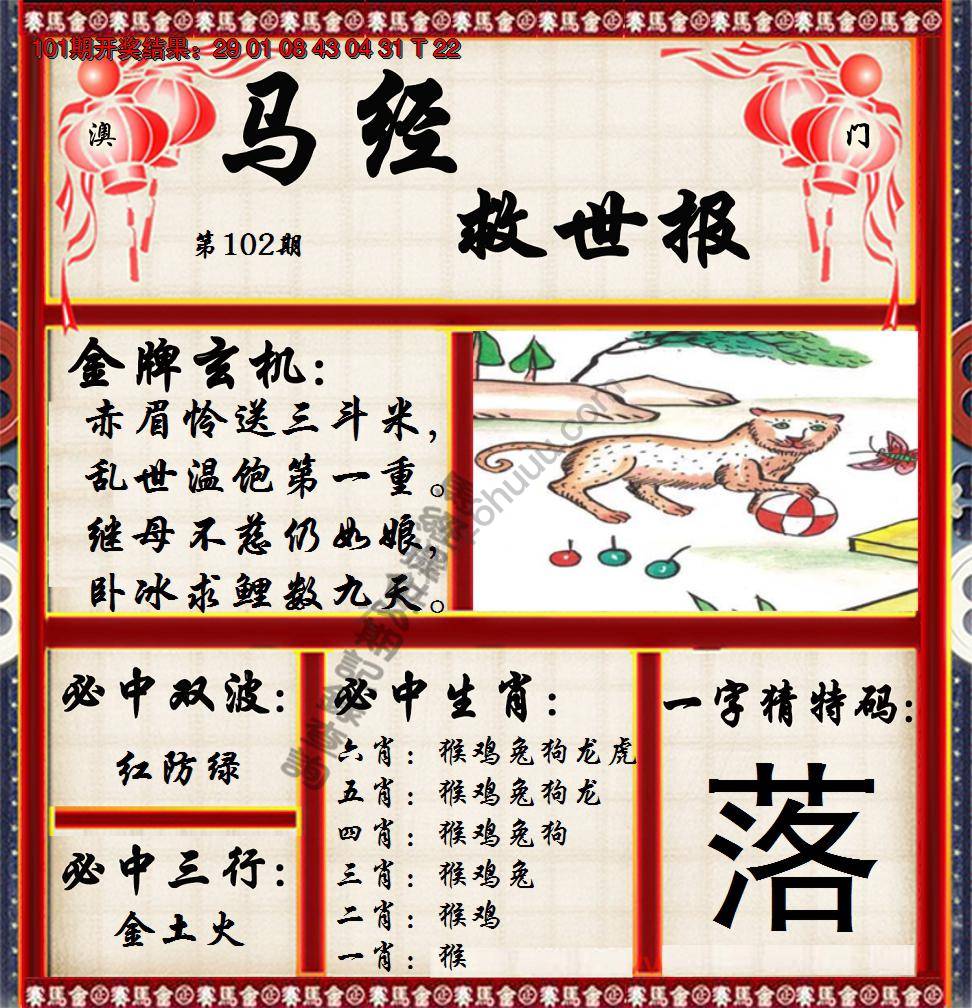 101期开奖结果：29 01 08 43 04 31 T 22
澳
门
马经
救世报
第102期
金牌玄机：
赤眉怜送三斗米，
乱世温饱第一重。
继母不慈仍如娘，
卧冰求鲤数九天。
必中双波：
红防绿
必中三行：
金土火
必中生肖：
六肖：猴鸡兔狗龙虎
五肖：猴鸡兔狗龙
四肖：猴鸡兔狗
三肖：猴鸡兔
二肖：猴鸡
一肖：猴
一字猜特码：
落